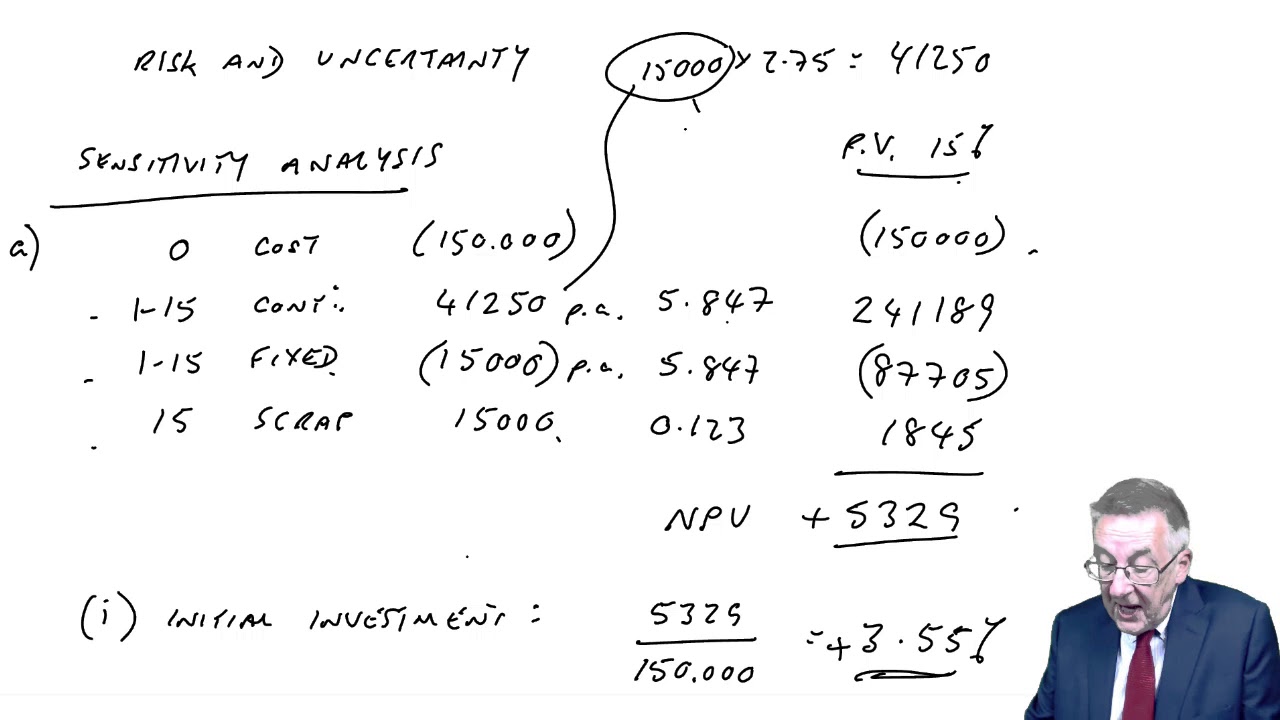 RISK AND UNCERTAINTY 15000 x 2.75 = 41250
SENSITIVITY ANALYSIS P.V. 15%
a) 0 COST (150.000) (150000)
1-15 CONT: 41250 p.a. 5.847 241189
1-15 FIXED (15000) p.a. 5.847 (87705)
15 SCRAP 15000 0.123 1845
NPV + 5329
(i) INITIAL INVESTMENT = 5329 / 150.000 = +3.55%